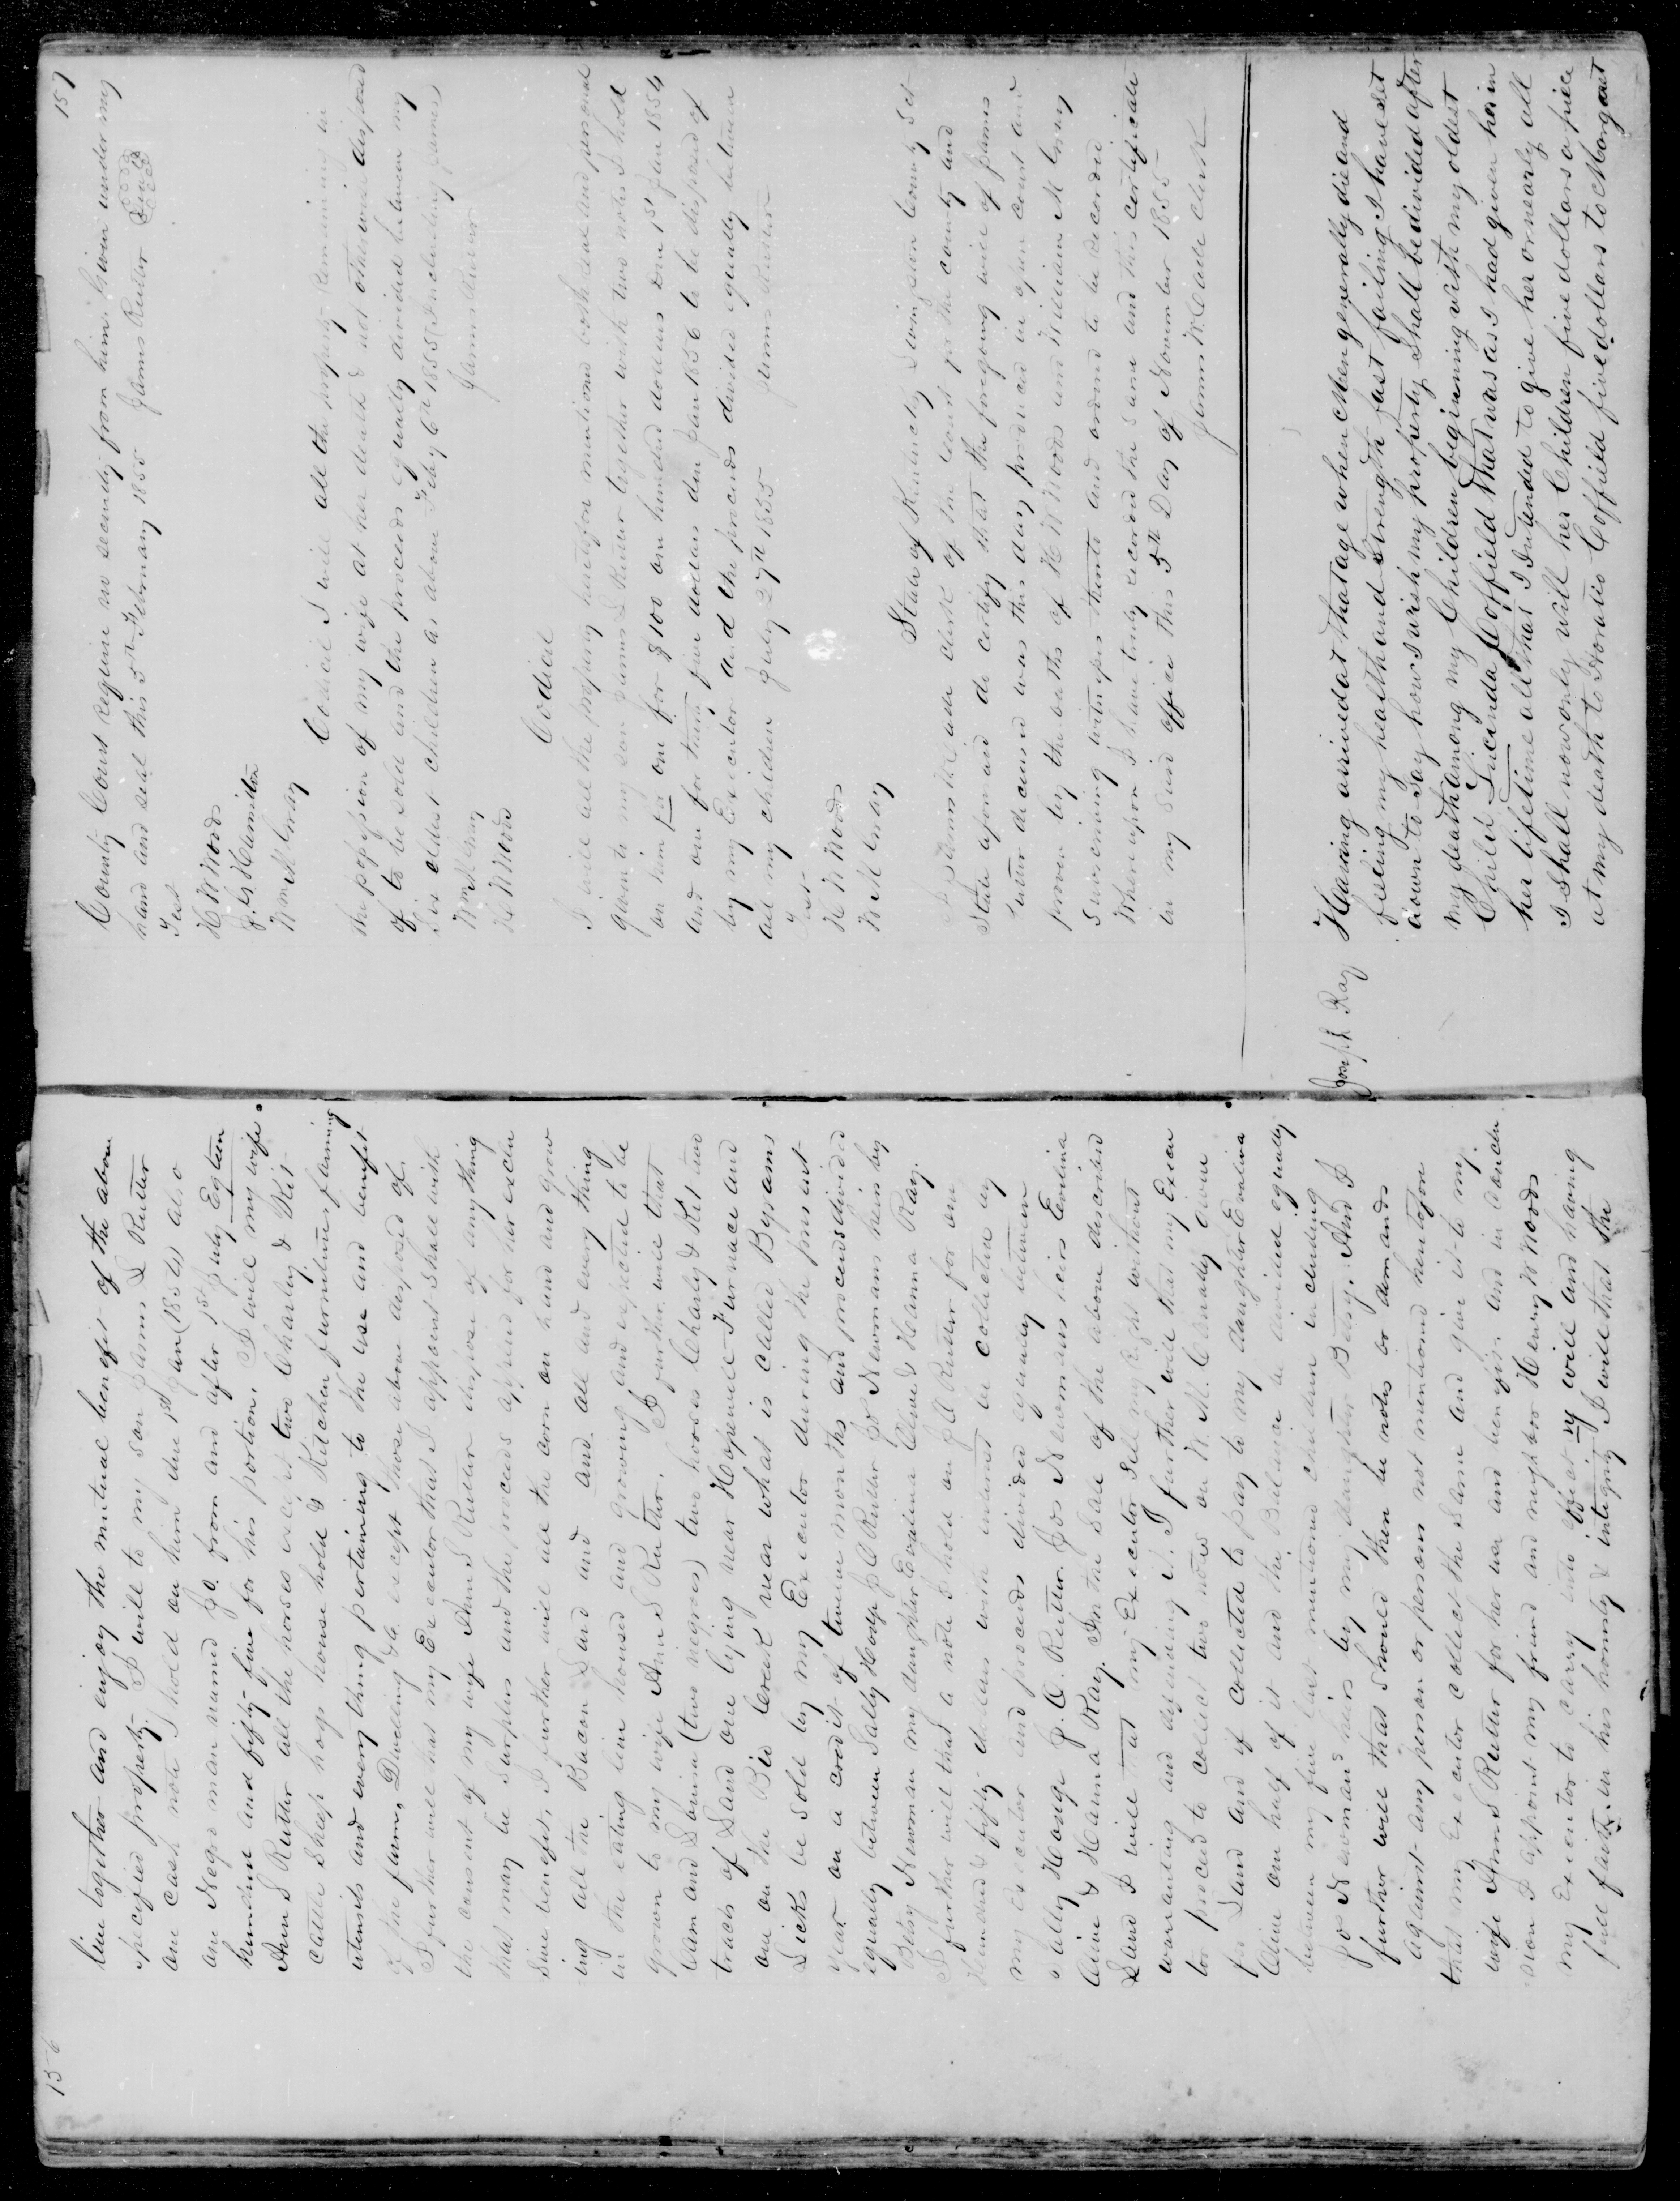 156
live together and enjoy the mutual benefit of the above
specified property. I will to my son James L Rutter
one Cash note I hold on him due 1st Jan (1854) also
one Negro man named Jo. from and after 1st July Egteen
hundred and fifty-five for his portion. I will my wife
Ann S Rutter all the horses except two Charly & Kit
Cattle Sheep hogs house hold & Kitchen furniture, farming
utensils and every thing pertaining to the use and benefit
of the farm, Dwelling &c except those above disposed of,
I further will that my Executor that I appoint shall with
the consent of my wife Ann S Rutter dispose of any thing
that may be Surplus and the proceeds applied for her exclu
sive benefit, I further will all the corn on hand and grow
ing all the Bacon Lard and and all and every thing
in the eating line housed and growing and expected to be
grown to my wife Ann S Rutter. I further will that
Cam and Lovina (two negroes) two horses Charly & Kit two
tracts of Land one lying near Hopewell Furnace and
one on the Bid Creek near what is called Bysams
Licks be sold by my Executor during the present
year on a credit of twelve months and proceeds divided
equally between Sally Hodge J A Rutter Jo Newmans heirs by
Betsy Newman my daughter Evaline Cline & Hanna Ray.
I further will that a note I hold on J A Rutter for one
Hundred & fifty dollars with interest be collected by
my Executor and proceeds divided equally between
Sally Hodge J. A. Rutter. Jos Newmans heirs Evelina
Cline & Hanna Ray. In the Sale of the above described
Land I will that my Executor Sell my Right without
warranting and defending it. I further will that my Execu
tor proceed to collect two notes on W. M. Cnady given
for Land and if collected to pay to my daughter Evalina
Cline one half of it and the Balance be divided equally
between my five last mentioned children including
Jo Newmans heirs by my daughter Betsy. And I
further will that Should there be notes or demands
against any person or persons not mentioned heretofore
that my Executor collect the Same and give it to my
wife Ann S Rutter for her use and benefit. And in Conclu
sion I appoint my friend and neighbor Henry W Woods
my Executor to carry into effect my will and having
full faith in his honesty & integrity I will that the
157
County Court require no security from him. Given under my
hand and seal this 5th February 1855 James Rutter Seal
Test
H W Woods
J. G. Hamilton
Wm M Cnay
Codicil I will all the property remaining in
the possession of my wife at her death & not otherwise disposed
of to be sold and the proceeds equally divided between my
Six oldest children as above Feby 6th 1855 Including James
Wm M Cnay James Rutter
H W Woods
Codicil
I will all the property heretofore mentioned both real and personal
given to my son James L Rutter together with two notes I hold
on him for one for $100 one hundred dollars due 1st Jan 1854
and one for thirty five dollars due Jan 1856 to be disposed of
by my Executor and the proceeds divided equally between
all my children July 27th 1855 James Rutter
Test
H W Woods
W M Cnay
State of Kentucky Livingston County Sct
I James W Cade clerk of the Court for the County and
State aforesaid do certify that the foregoing will of James
Rutter deceased was this day produced in open court and
proven by the oaths of H W Woods and William M Cnay
Surviving witnesses thereto and ordered to be recorded
Whereupon I have truly recorded the Same and this certificate
in my said office this 5th Day of November 1855
James W. Cade Clerk
Joseph Ray
Having arrived at that age when Men generally die and
feeling my health and Strength fast failing, I have set
down to say how I wish my property Shall be divided after
my death among my Children beginning with my oldest
Child Lucinda Coffield that was as I had given her in
her lifetime all that I Intended to give her or nearly all
I Shall now only will her Children five dollars a piece
at my death to Horatio Coffield five dollars to Margaret